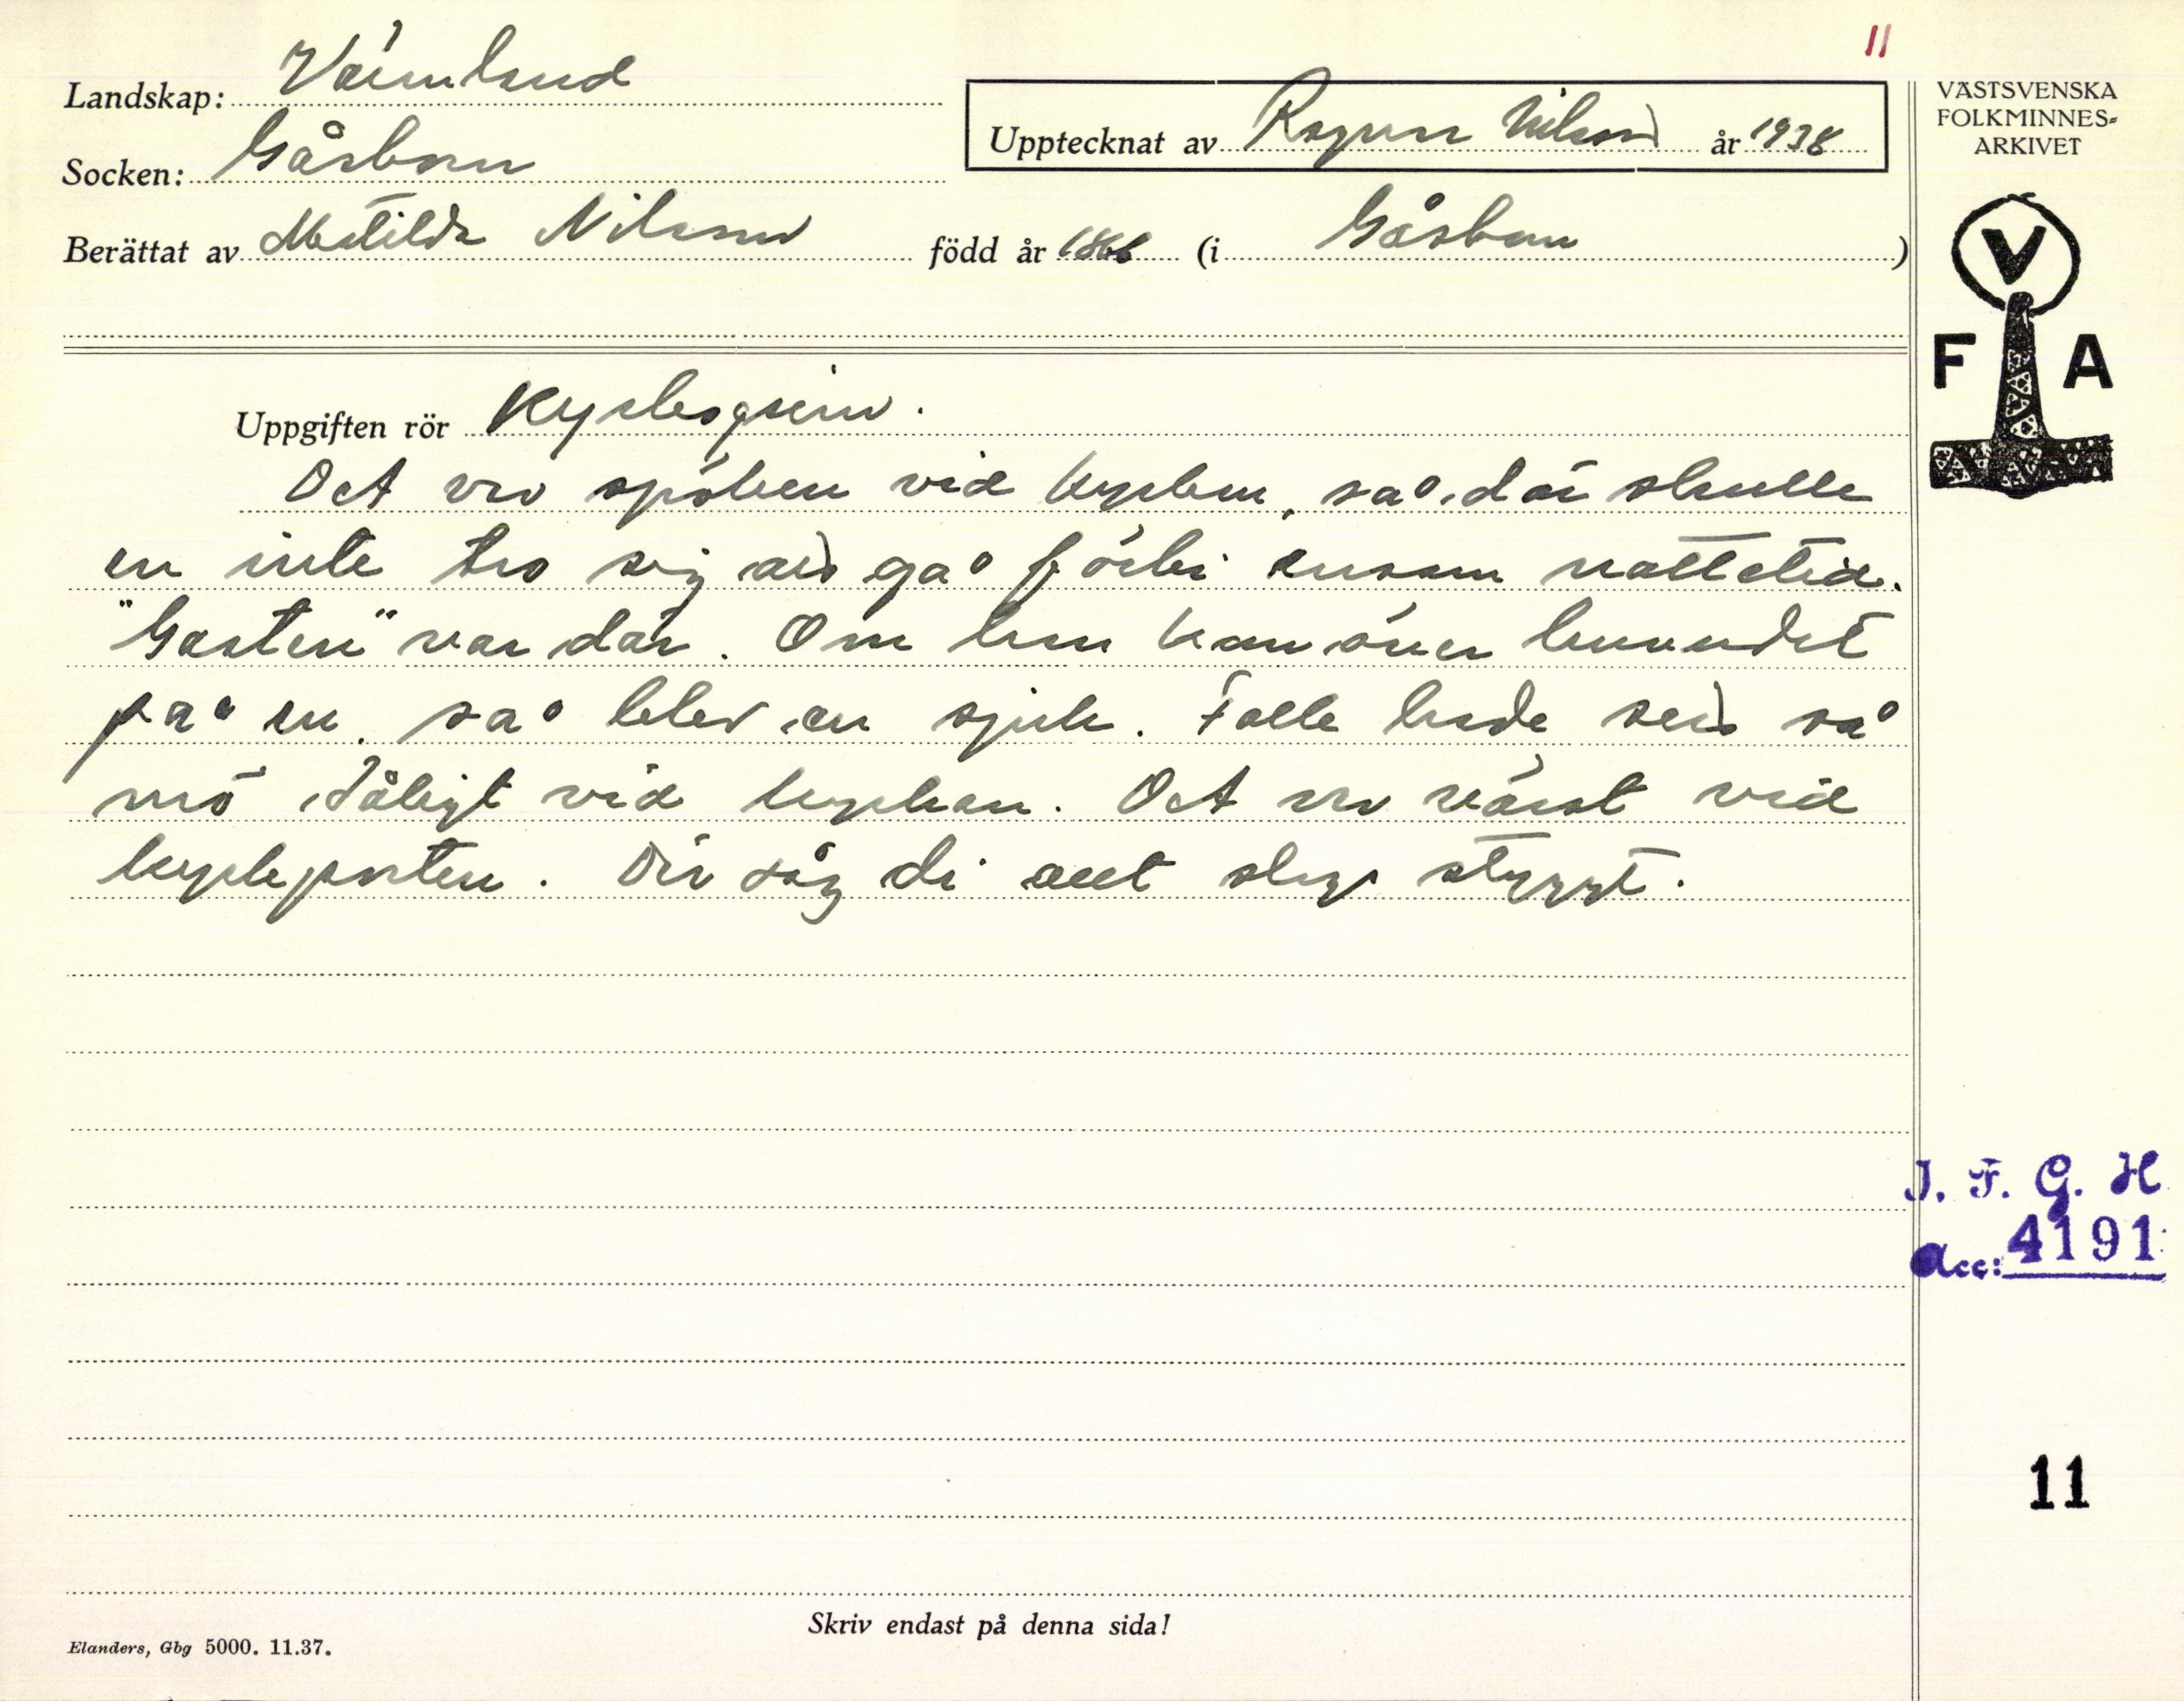 11
Landskap: Värmland
Socken: Gåsborn
Upptecknat av Ragnar Nilsson år 1938
Berättat av Matilda Nilsson född år 1866 (i Gåsborn)
VÄSTSVENSKA
FOLKMINNES-
ARKIVET
V
F A
Uppgiften rör Kyrkogrim.
Det va spöken vid kyrkan, så där skulle
en inte tro sig att gå förbi ensam nattetid.
"Gasten" var där. Om han kom över
på en, så blev en sjuk. Folk hade sett så
mö dåligt vid kyrkan. Det va värst vid
kyrkporten. Där såg di allt slags styggt.
J. F. G. H
Acc: 4191
11
Skriv endast på denna sida!
Elanders, Gbg 5000. 11.37.